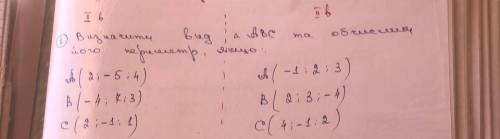 II в
II в
① Визначити вид △ ABC та обчислити
його периметр, якщо:
A( 2 ; -5 ; 4)
A( -1 ; 2 ; 3)
B( -4 ; 7 ; 3)
B( 2 ; 3 ; -4)
C( 2 ; -1 ; 1)
C( 4 ; -1 ; 2)